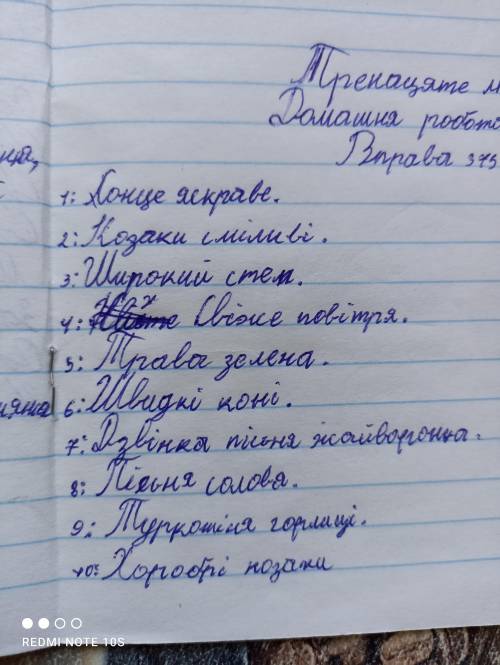 Тренацяте м
Домашня робота
Вправа 373
1: Сонце яскраве.
2: Козаки сміливі.
3: Широкий степ.
4: Свіже повітря.
5: Трава зелена.
6: Швидкі коні.
7: Дзвінка пісьня жайворонка.
8: Пісьня солова.
9: Туркотіня горлиці.
10: Хоробрі козаки
REDMI NOTE 10S